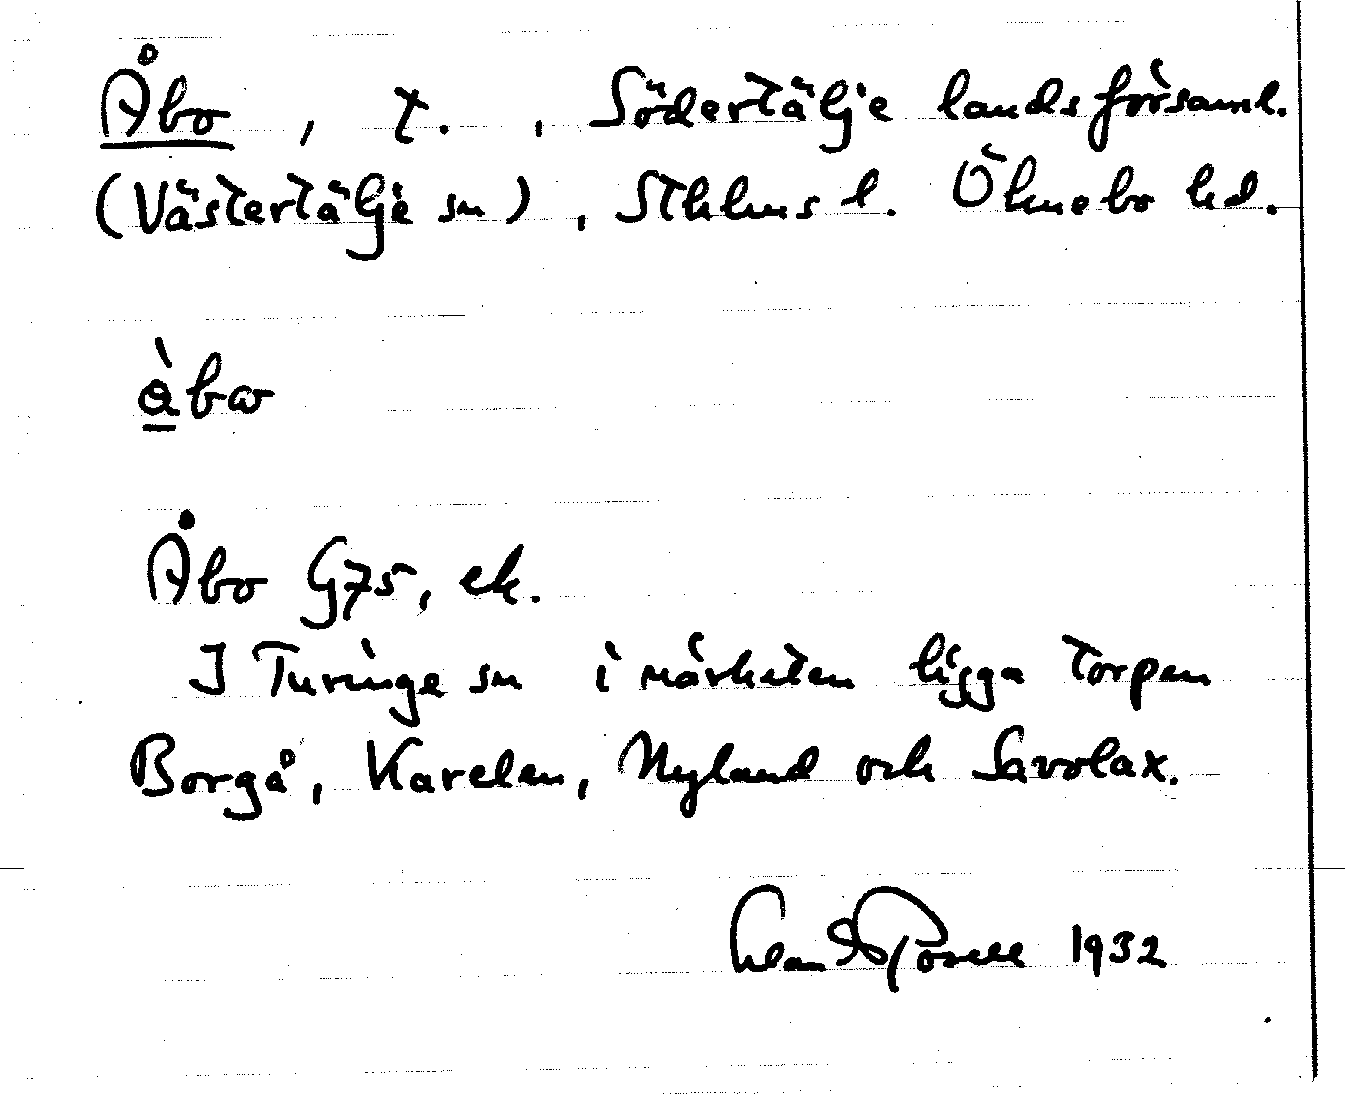 Åbo, t., Södertälje landsförsaml.
(Västertälje sn), Sthlms l. Öknebo hd.
àbω
Åbo G75, ek.
I Turinge sn i närheten ligga torpen
Borgå, Karelen, Nyland och Savolax.
1932